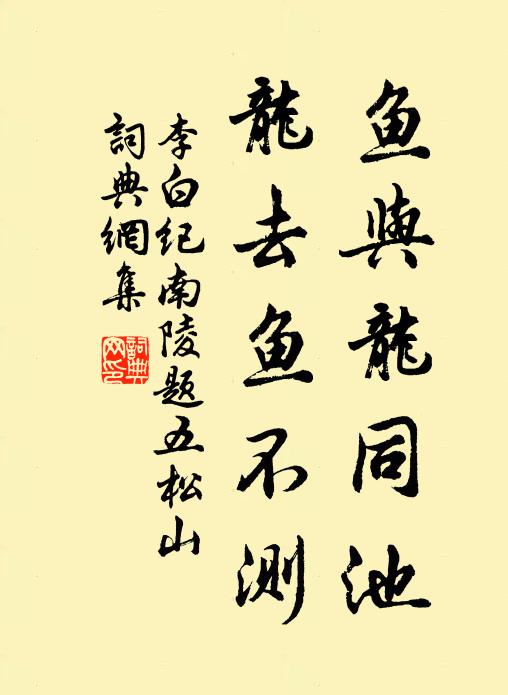 鱼與龍同池
龍去鱼不測
李白纪南陵题五松山
詞典網集
詞典
网印